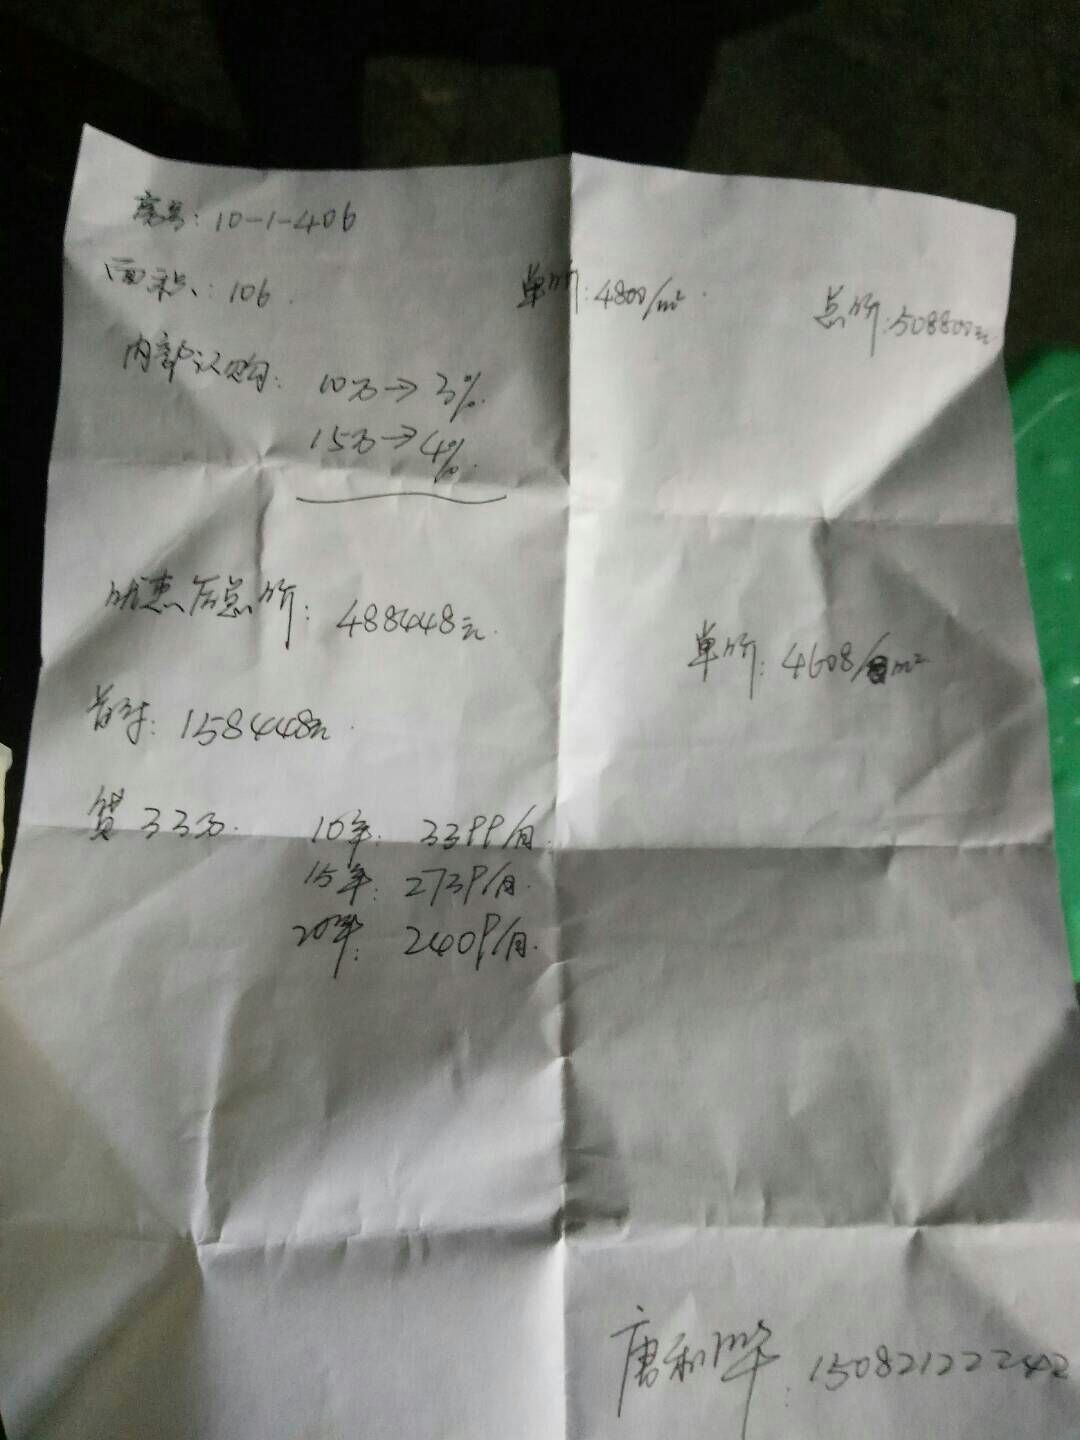 房号：10-1-406
面积：106 单价：4800/m² 总价：508800元
内部认购：10万→3%
15万→4%
优惠后总价：488448元 单价：4608/m²
首付：158448元
贷33万 10年：3399/月
15年：2739/月
20年：2409/月
唐和 15082122242